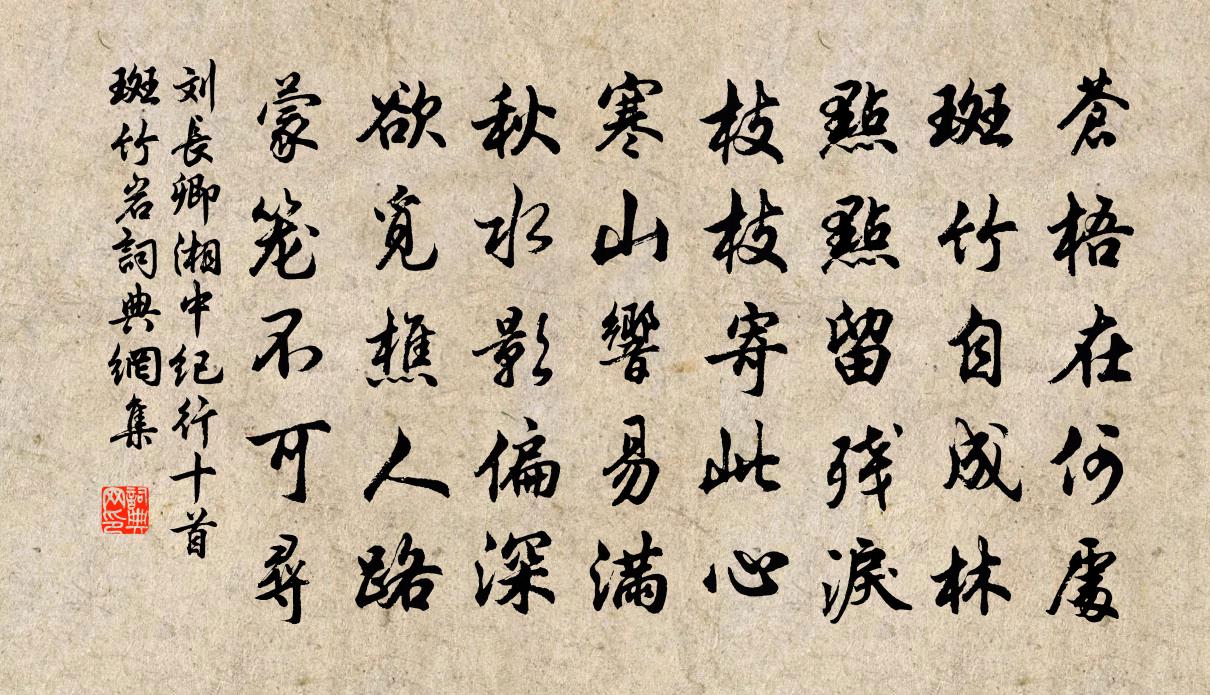 蒼梧在何處
斑竹自成林
點點留残淚
枝枝寄此心
寒山響易滿
秋水影偏深
欲覓樵人路
蒙笼不可尋
刘長卿湘中纪行十首
斑竹岩詞典網集
詞典网印